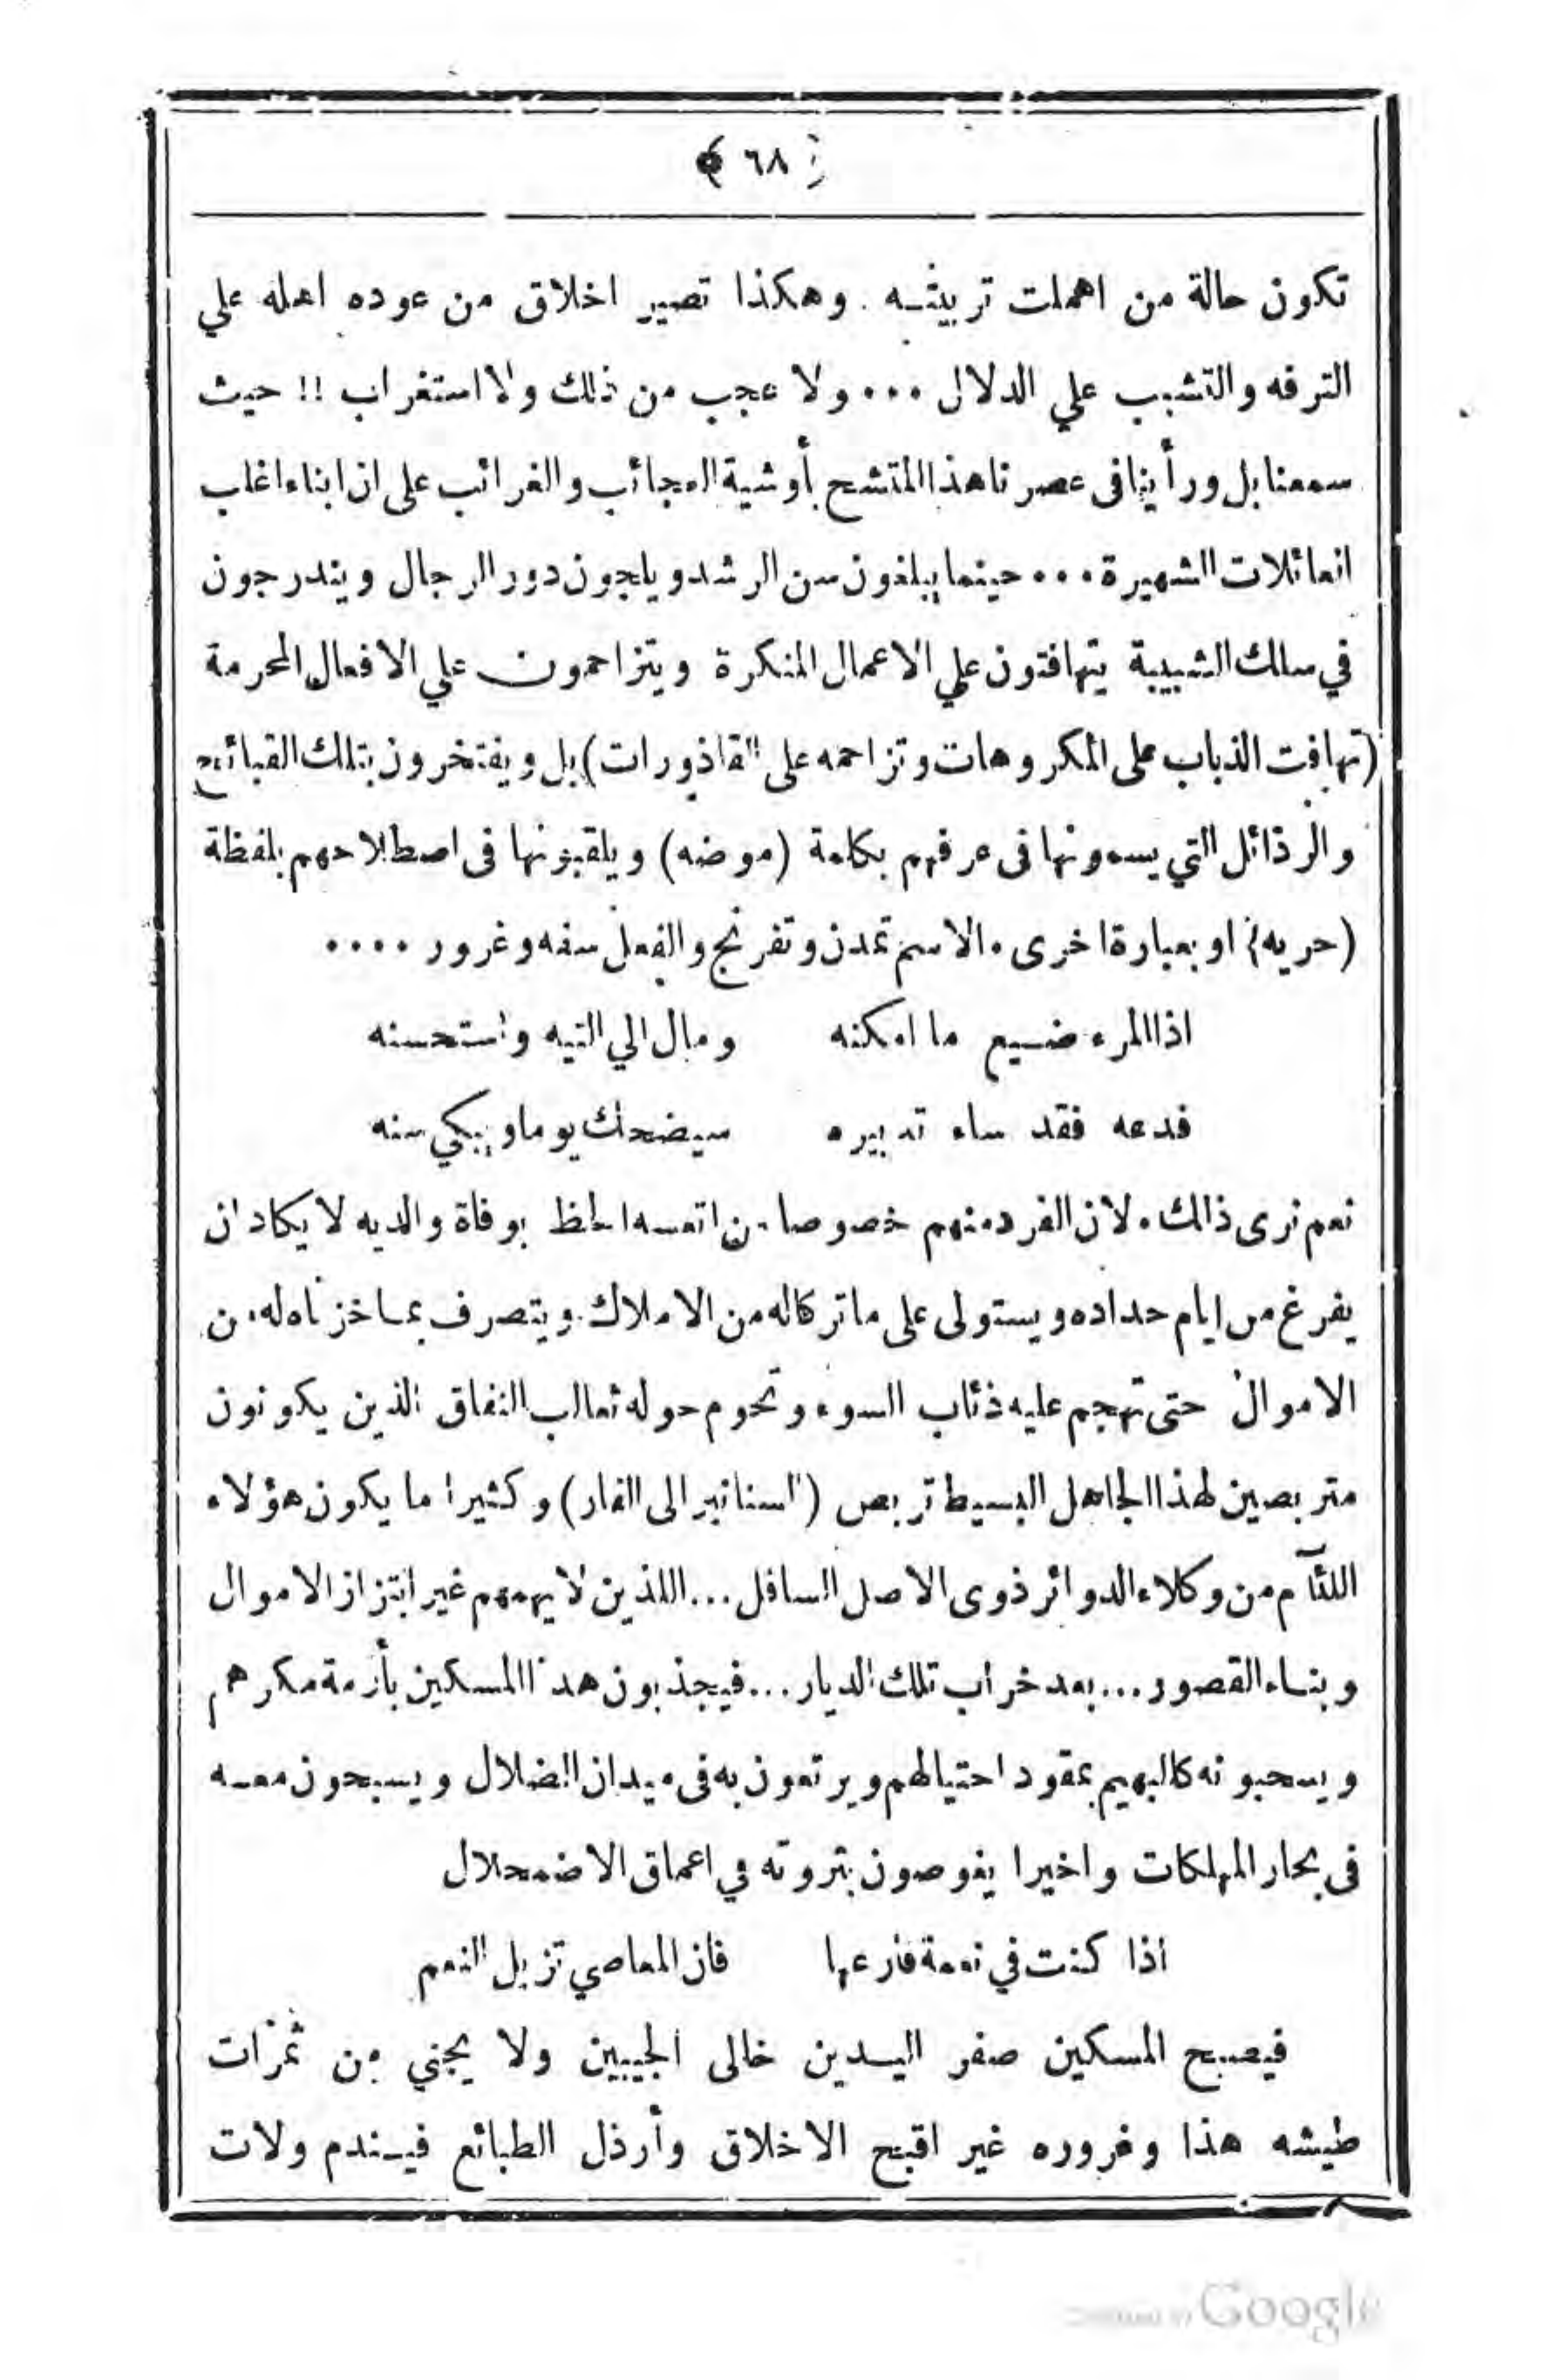 ﴿ ٦٨ ﴾
تكون حالة من اهملت تربيته . وهكذا تصير اخلاق من عوده اهله علي
الترفه والتشبب علي الدلال ... ولا عجب من ذلك ولا استغراب !! حيث
سمعنا بل ورأينا فى عصرنا هذا المتشح بأوشية العجائب والغرائب على ان ابناء اغلب
العائلات الشهيرة ... حينما يبلغون سن الرشد ويلجون دور الرجال ويندرجون
في سلك الشبيبة يتهافتون علي الاعمال المنكرة ويتزاحمون علي الافعال المحرمة
(تهافت الذباب على المكروهات وتزاحمه على القاذورات) بل ويفتخرون بتلك القبائح
والرذائل التي يسمونها فى عرفهم بكلمة (موضه) ويلقبونها فى اصطلاحهم بلفظة
(حريه) او بعبارة اخرى . الاسم تمدن وتفرنج والفعل سفه وغرور ....
اذا المرء ضيع ما امكنه ومال الي التيه واستحسنه
فدعه فقد ساء تدبيره سيضحك يوما ويبكي سنه
نعم نرى ذلك . لان الفرد منهم خصوصا من اتعسه الحظ بوفاة والديه لا يكاد ان
يفرغ من ايام حداده ويستولى على ما تركا له من الاملاك ويتصرف بما خزناه له من
الاموال حتى تهجم عليه ذئاب السوء وتحوم حوله ثعالب النفاق الذين يكونون
متربصين لهذا الجاهل البسيط تربص (السنانير الى الفار) وكثيرا ما يكون هؤلاء
اللئآم من وكلاء الدوائر ذوى الاصل السافل ... اللذين لا يهمهم غير ابتزاز الاموال
وبناء القصور ... بعد خراب تلك الديار ... فيجذبون هذا المسكين بأزمة مكرهم
ويسحبونه كالبهيم بمقود احتيالهم ويرتعون به فى ميدان الضلال ويسبحون معه
فى بحار المهلكات واخيرا يغوصون بثروته في اعماق الاضمحلال
اذا كنت في نعمة فارعها فان المعاصي تزيل النعم
فيصبح المسكين صفر اليدين خالى الجيبين ولا يجني من ثمرات
طيشه هذا وغروره غير اقبح الاخلاق وأرذل الطبائع فيندم ولات
Google